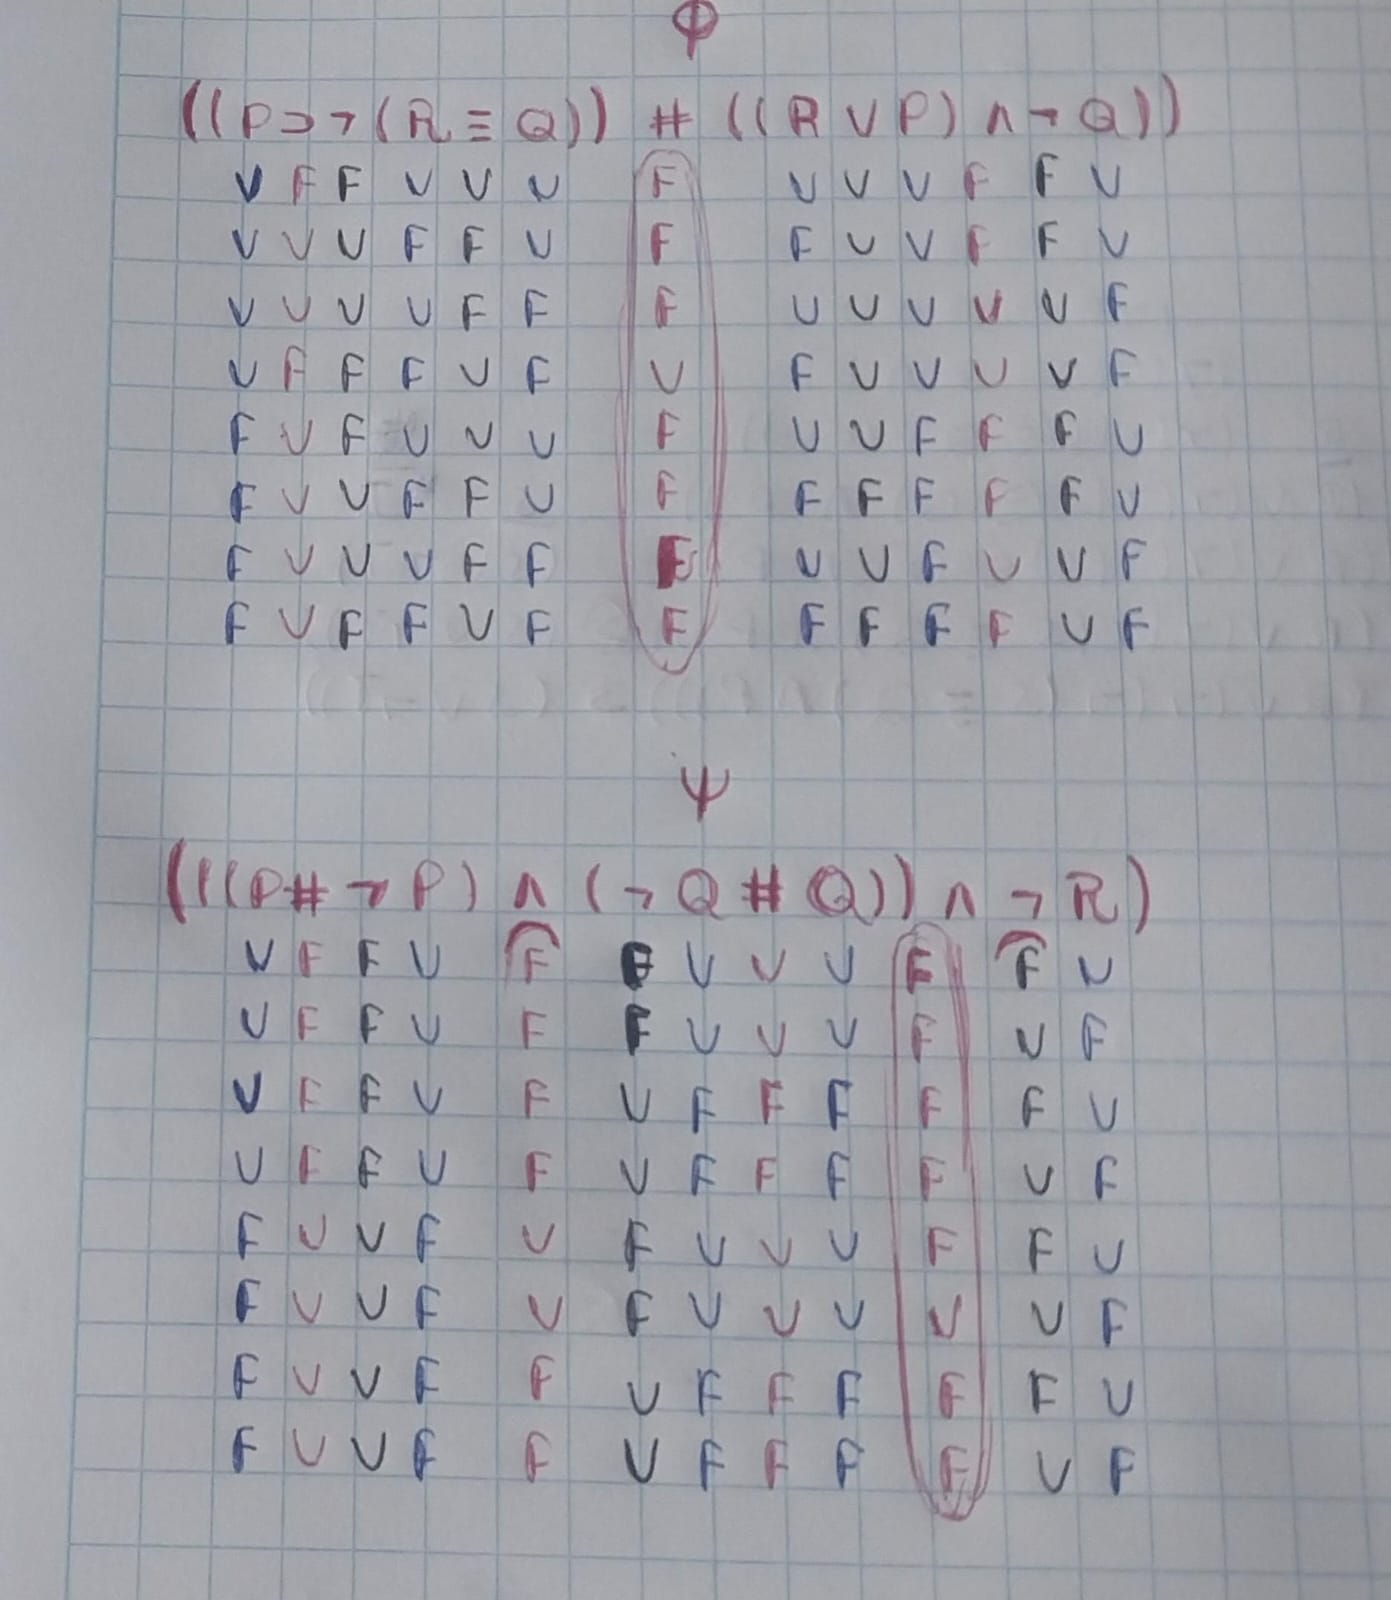 φ
((P⊃¬(R≡Q)) # ((R∨P)∧¬Q))
V F F V V V F V V V F F V
V V V F F V F F V V F F V
V V V V F F F V V V V V F
V F F F V F V F V V V V F
F V F V V V F V V F F F V
F V V F F V F F F F F F V
F V V V F F F V V F V V F
F V F F V F F F F F F V F
Ψ
(((P#¬P)∧(¬Q#Q))∧¬R)
V F F V F F V V V F F V
V F F V F F V V V F V F
V F F V F V F F F F F V
V F F V F V F F F F V F
F V V F V F V V V F F V
F V V F V F V V V V V F
F V V F F V F F F F F V
F V V F F V F F F F V F